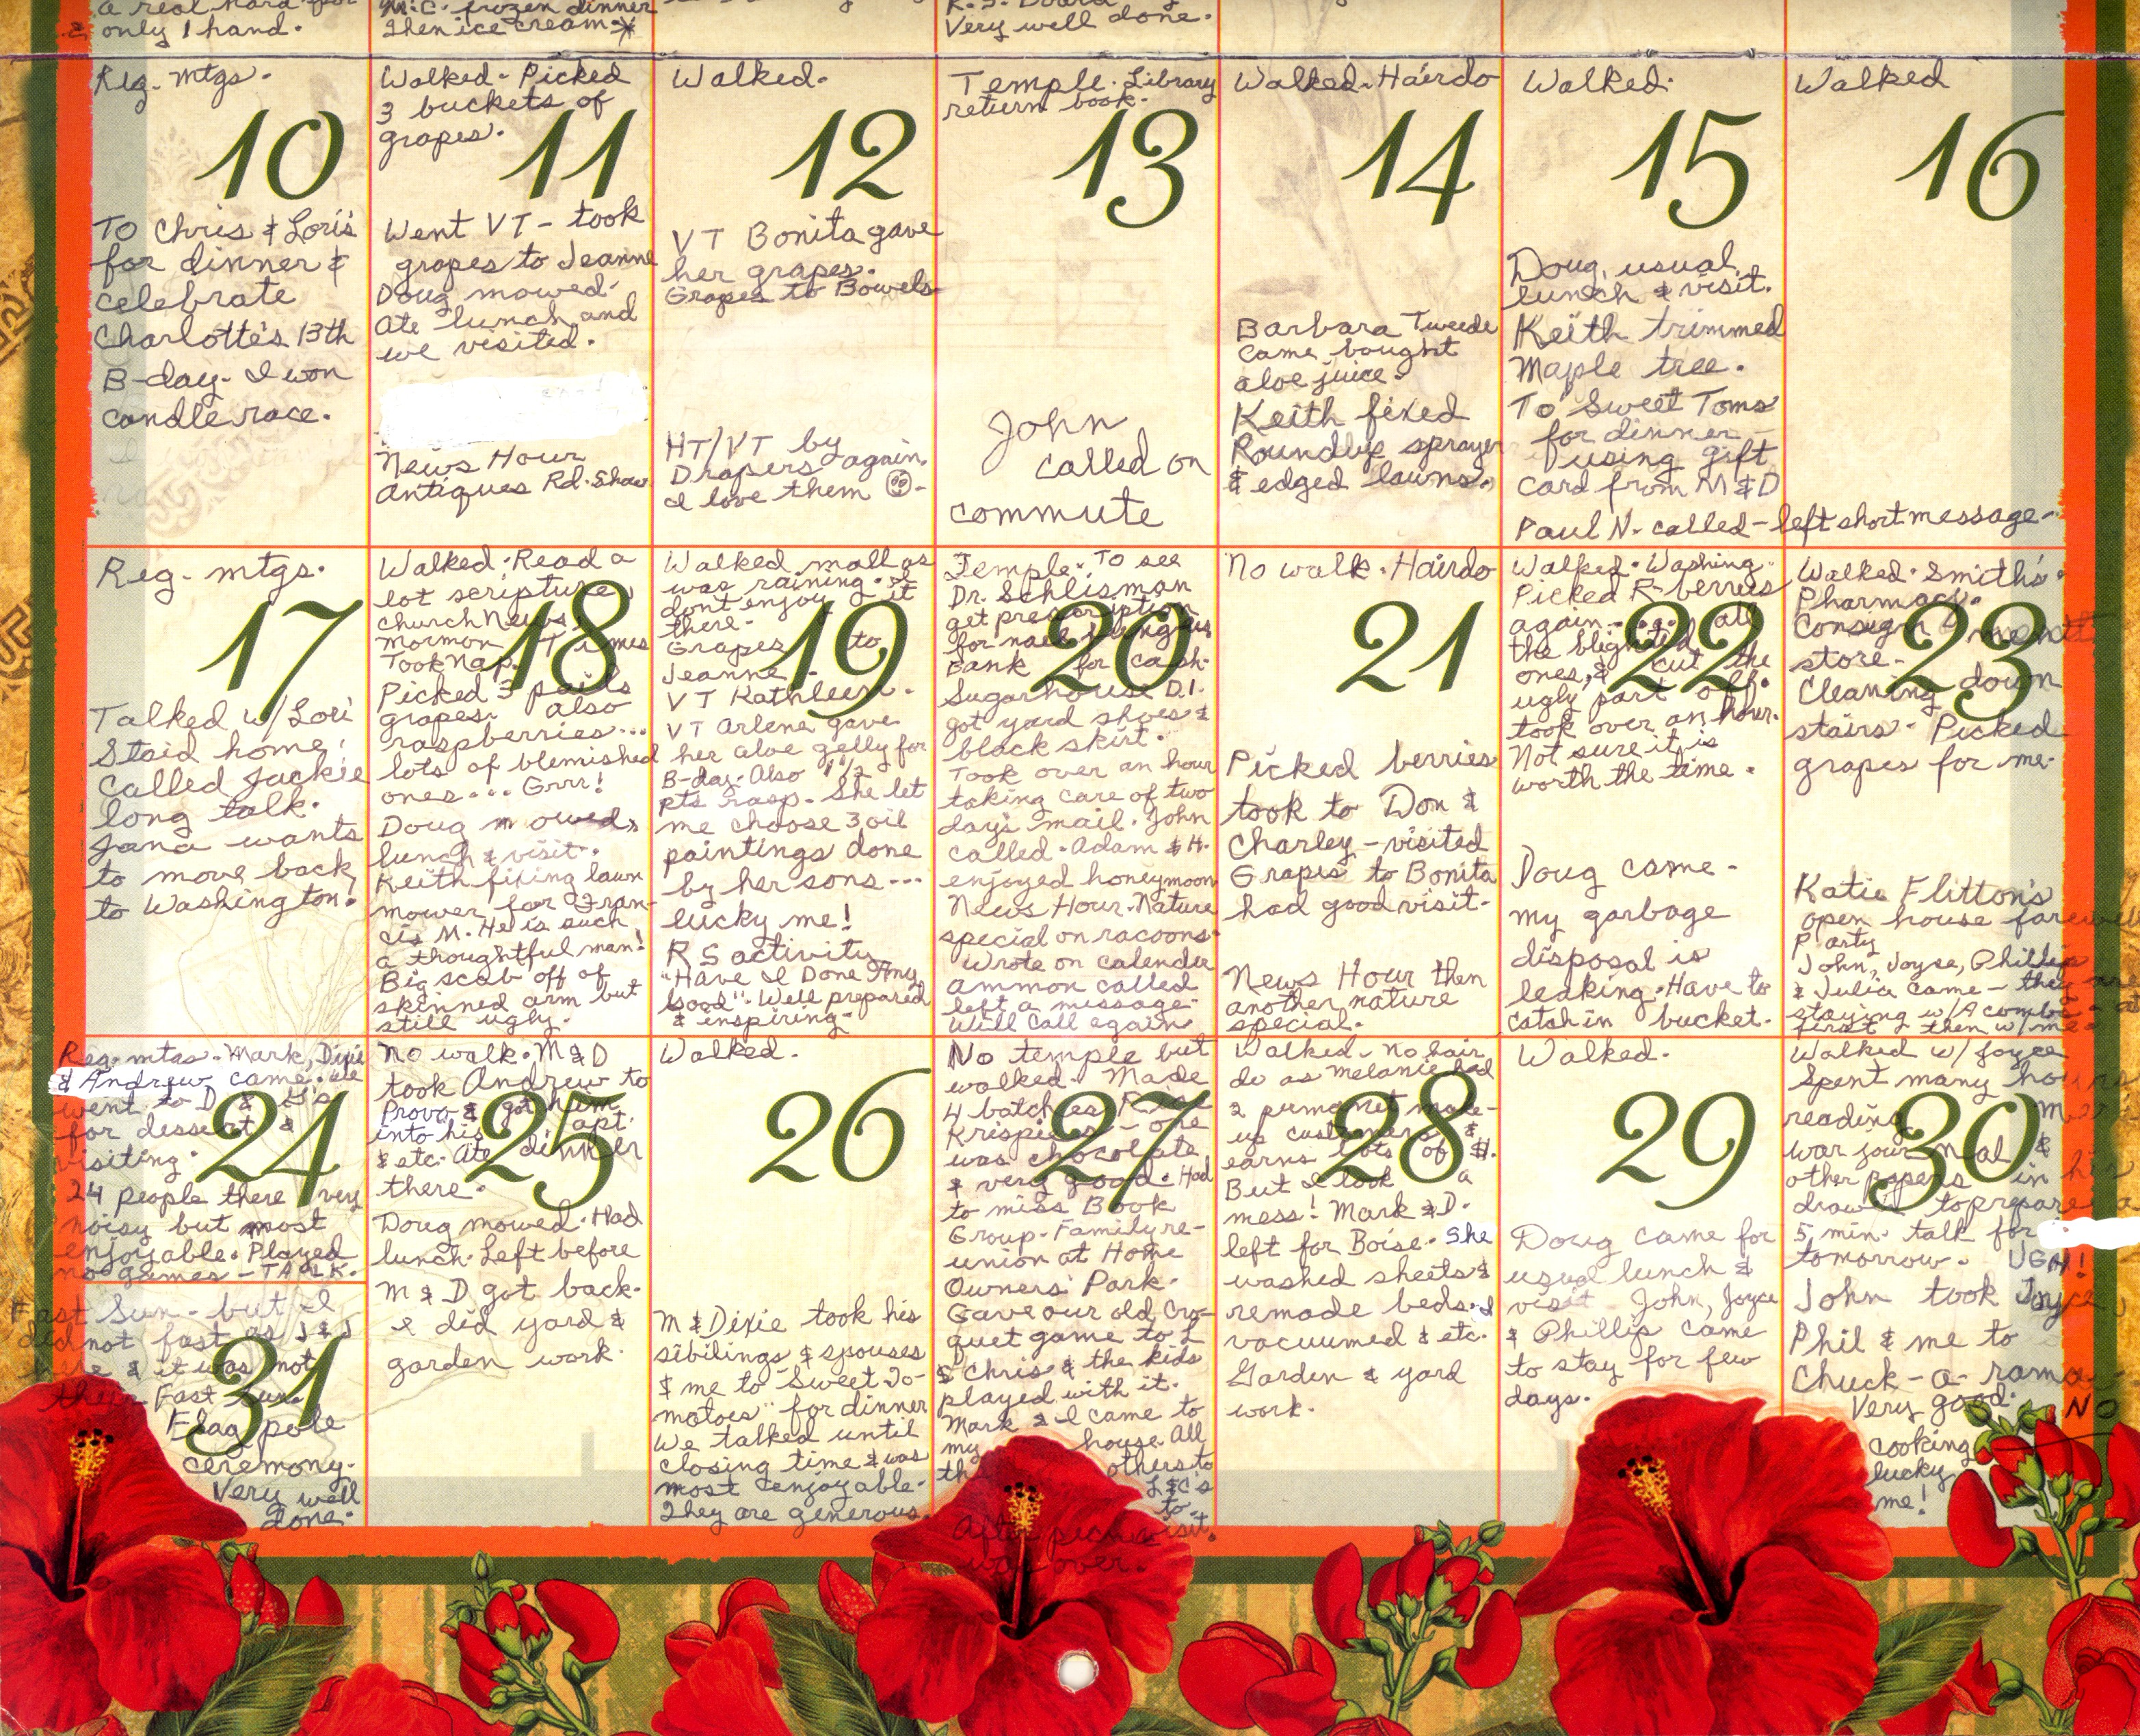 a real hard for
& only 1 hand.
M.C. frozen dinner
Then ice cream
R.S. Board
Very well done.
Reg. mtgs.
10
To Chris & Lori's
for dinner &
celebrate
Charlotte's 13th
B-day. I won
candle race.
Walked. Picked
3 buckets of
grapes.
11
Went VT - took
grapes to Jeanne
Doug mowed.
Ate lunch and
we visited.
News Hour
Antiques Rd. Show
Walked.
12
VT Bonita gave
her grapes.
Grapes to Bowels
HT/VT by
Drapers again.
I love them ☺.
Temple. Library
return book.
13
John
called on
commute
Walked. Hairdo
14
Barbara Tweede
came bought
aloe juice.
Keith fixed
Roundup sprayer
& edged lawns.
Walked.
15
Doug, usual
lunch & visit.
Keith trimmed
Maple tree.
To Sweet Toms
for dinner -
using gift
card from M & D
Paul N. called - left short message.
Walked
16
Reg. mtgs.
17
Talked w/ Lori
Staid home.
Called Jackie
long talk.
Jana wants
to move back
to Washington.
Walked. Read a
lot scripture,
Church News,
Mormon Times
Took Nap.
18
Picked 3 pails
grapes. also
raspberries...
lots of blemished
ones... Grrr!
Doug mowed,
lunch & visit.
Keith fixing lawn
mower for Fran-
cis M. He is such
a thoughtful man!
Big scab off of
skinned arm but
still ugly.
Walked mall as
was raining. I
dont enjoy it
there.
19
Grapes to
Jeanne.
VT Kathleen.
VT Arlene gave
her aloe gelly for
B-day. Also 1 1/2
pts rasp. She let
me choose 3 oil
paintings done
by her sons...
lucky me!
RS activity
"Have I Done Any
Good". Well prepared
& inspiring.
Temple. To see
Dr. Schlisman
get prescription
for nail fungus
20
Bank for cash.
Sugarhouse D.I.
got yard shoes &
black skirt.
Took over an hour
taking care of two
days mail. John
called. Adam & H.
enjoyed honeymoon
News Hour. Nature
special on racoons.
Wrote on calender
Ammon called
left a message.
Will call again.
No walk. Hairdo
21
Picked berries
took to Don &
Charley - visited
Grapes to Bonita
had good visit.
News Hour then
another nature
special.
Walked. Washing.
Picked R-berries
again... all
the blighted
ones, & cut the
ugly part off.
22
took over an hour.
Not sure it is
worth the time.
Doug came.
my garbage
disposal is
leaking. Have to
catch in bucket.
Walked. Smith's
Pharmacy.
Consignment
store.
23
Cleaning down
stairs. Picked
grapes for me.
Katie Flitton's
open house farewell
Party
John, Joyce, Phillip
& Julia came - they are
staying w/A combe - at
first then w/me.
Reg. mtgs. Mark, Dixie
& Andrew came. We
went to D & G's
for dessert &
visiting.
24
24 people there very
noisy but most
enjoyable. Played
no games - TALK.
Fast Sun. but I
did not fast as J & J
here & it was not
their Fast Sun.
31
Flag pole
ceremony.
Very well
done.
No walk. M & D
took Andrew to
Provo & got him
into his apt.
& etc. Ate dinner
there.
25
Doug mowed. Had
lunch. Left before
M & D got back.
I did yard &
garden work.
Walked.
26
M & Dixie took his
sibilings & spouses
& me to "Sweet To-
matoes" for dinner
We talked until
closing time & was
most enjoyable.
They are generous.
No temple but
walked. Made
4 batches Rice
Krispies - one
was chocolate
& very good. Had
27
to miss Book
Group. Family re-
union at Home
Owners' Park.
Gave our old Cro-
quet game to L
& Chris & the kids
played with it.
Mark & I came to
my house. All
the others to
L & C's
to
visit.
After picnic
was over.
Walked - no hair
do as Melanie had
2 permanet make-
up customers &
earns lots of $.
28
But I look a
mess! Mark & D.
left for Boise. She
washed sheets &
remade beds. I
vacuumed & etc.
Garden & yard
work.
Walked.
29
Doug came for
usual lunch &
visit. John, Joyce
& Phillip came
to stay for few
days.
Walked w/ Joyce
Spent many hours
reading
war journal &
other papers in his
30
drawer to prepare a
5 min. talk for
tomorrow. UGH!
John took Joyce,
Phil & me to
Chuck-a-rama.
Very good. NO
cooking
lucky
me!